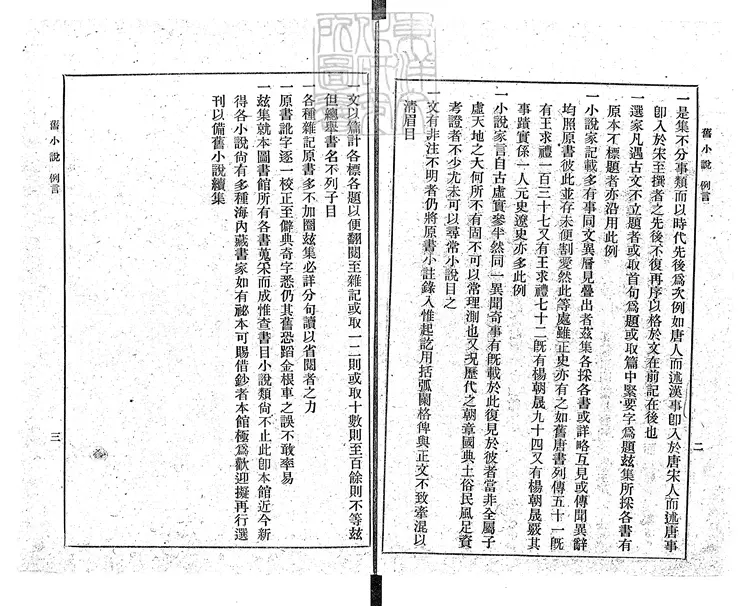 舊小說 例言
二
一是集不分事類而以時代先後爲次例如唐人而述漢事卽入於唐宋人而述唐事
卽入於宋至撰者之先後不復再序以格於文在前記在後也
一選家凡遇古文不立題者或取首句爲題或取篇中緊要字爲題茲集所採各書有
原本不標題者亦沿用此例
一小說家記載多有事同文異層見疊出者茲集各採各書或詳略互見或傳聞異辭
均照原書彼此並存未便割愛然此等處雖正史亦有之如舊唐書列傳五十一旣
有王求禮一百三十七又有王求禮七十二旣有楊朝晟九十四又有楊朝晟嚴其
事蹟實係一人元史遼史亦多此例
一小說家言自古虛實參半然同一異聞奇事有旣載於此復見於彼者當非全屬子
虛天地之大何所不有固不可以常理測也又況歷代之朝章國典土俗民風足資
考證者不少尤未可以尋常小說目之
一文有非注不明者仍將原書小註錄入惟起訖用括弧闌格俾與正文不致牽混以
淸眉目
一文以篇計各標各題以便翻閱至雜記或取一二則或取十數則至百餘則不等茲
但總舉書名不列子目
一各種雜記原書多不加圈茲集必詳分句讀以省閱者之力
一原書訛字逐一校正至僻典奇字悉仍其舊恐蹈金根車之誤不敢率易
一茲集就本圖書館所有各書蒐采而成惟查書目小說類尙不止此卽本館近今新
得各小說尙有多種海內藏書家如有祕本可賜借鈔者本館極爲歡迎擬再行選
刊以備舊小說續集
舊小說 例言
三